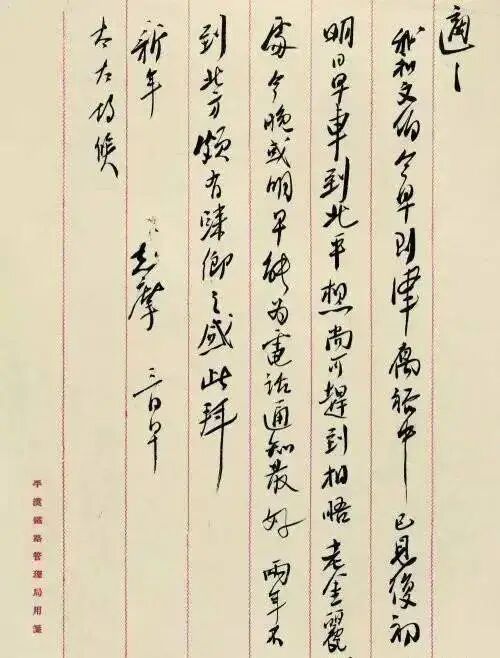 適之
我和文伯今早到津寓裕中已見復初
明日早車到北平想尚可趕到相晤老金麗
處今晚或明早能為電話通知最好 兩年不
到北方頗有鄉之感此拜
新年 志摩 三日早
太太均候
平漢鐵路管理局用箋